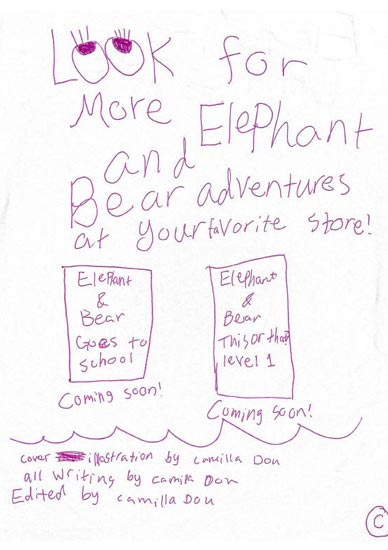 LOOK for
More Elephant
and
Bear adventures
at your favorite store!
Elephant
&
Bear
Goes to
school
Coming soon!
Elephant
&
Bear
This or that
level 1
Coming soon!
cover illastration by camilla Dou
all Writing by camilla Dou
Edited by camilla Dou
C